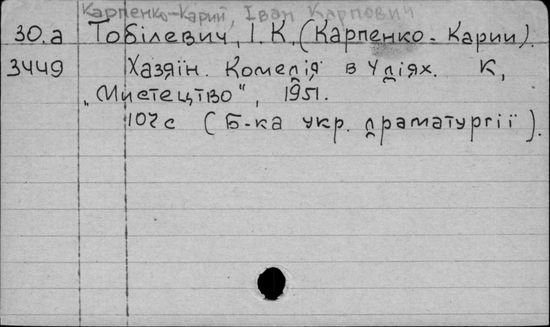 Карпенко-Карий, Іван Карпович
30.а Тобілевич, І. К. (Карпенко-Карий).
3449 Хазяїн. Комедія в 4 діях. К,
„Мистецтво", 1951.
102 с (Б-ка укр. драматургії).